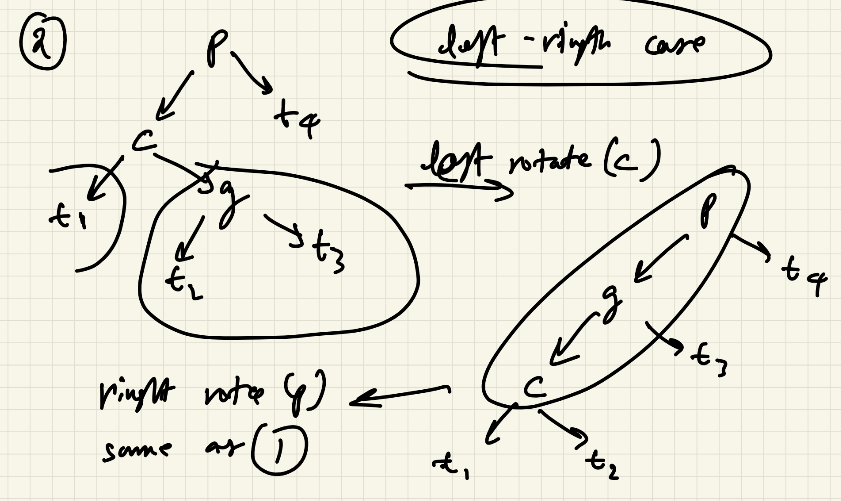 2
left-right case
p
c
t4
t1
g
t2
t3
left rotate (c)
p
g
t4
c
t3
t1
t2
right rotate (p)
same as 1